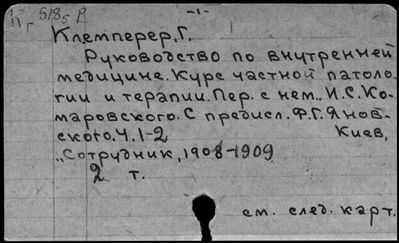 -1-
518 р
Клемперер, Г.
Руководство по внутренней
медицине. Курс частной патоло-
гии и терапии. Пер. с нем. И.С. Ко-
маровского. С предисл. Ф.Г. Янов-
ского. Ч. 1-2 Киев,
„Сотрудник, 1908-1909
2 т.
см. след. карт.